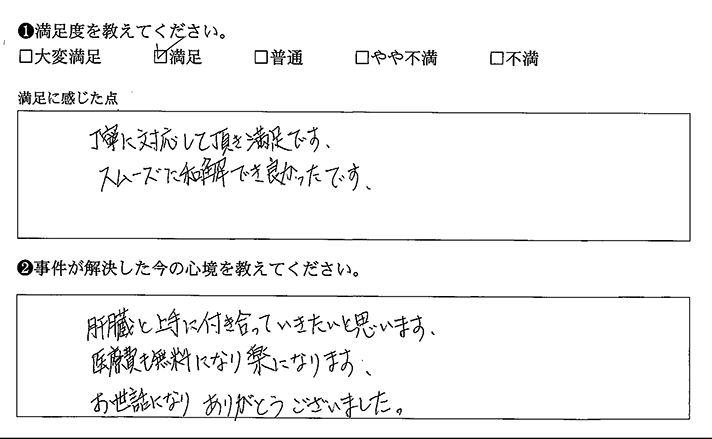 ❶満足度を教えてください。
□大変満足 ☑満足 □普通 □やや不満 □不満
満足に感じた点
丁寧に対応して頂き満足です、
スムーズに和解でき良かったです、
❷事件が解決した今の心境を教えてください。
肝臓と上手に付き合っていきたいと思います、
医療費も無料になり楽になります、
お世話になり ありがとうございました。